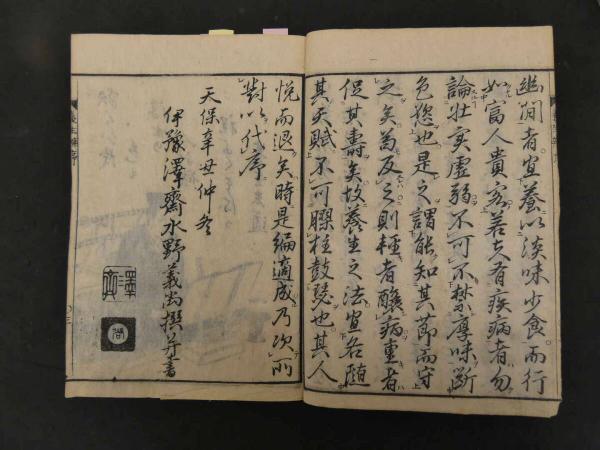 幽閒者宜養以淡味少食而行
如富人貴客若夫有疾病者勿
論壮実虚弱不可不禁厚味断
色慾也是之謂能知其節而守
之矣若反之則軽者醸病重者
促其壽矣故養生之法宜各随
其天賦不可膠柱鼓瑟也其人
悦而退矣時是編適成乃次所
對以代序
天保辛丑仲冬
伊豫澤齋水野義尚撰并書